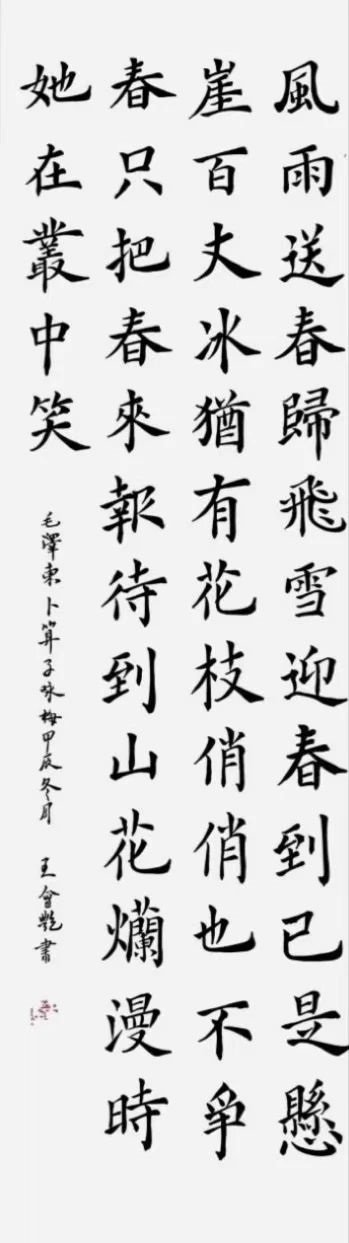 風雨送春歸飛雪迎春到已是懸
崖百丈冰猶有花枝俏俏也不爭
春只把春來報待到山花爛漫時
她在叢中笑
毛澤東卜算子咏梅甲辰冬月 王會艷書